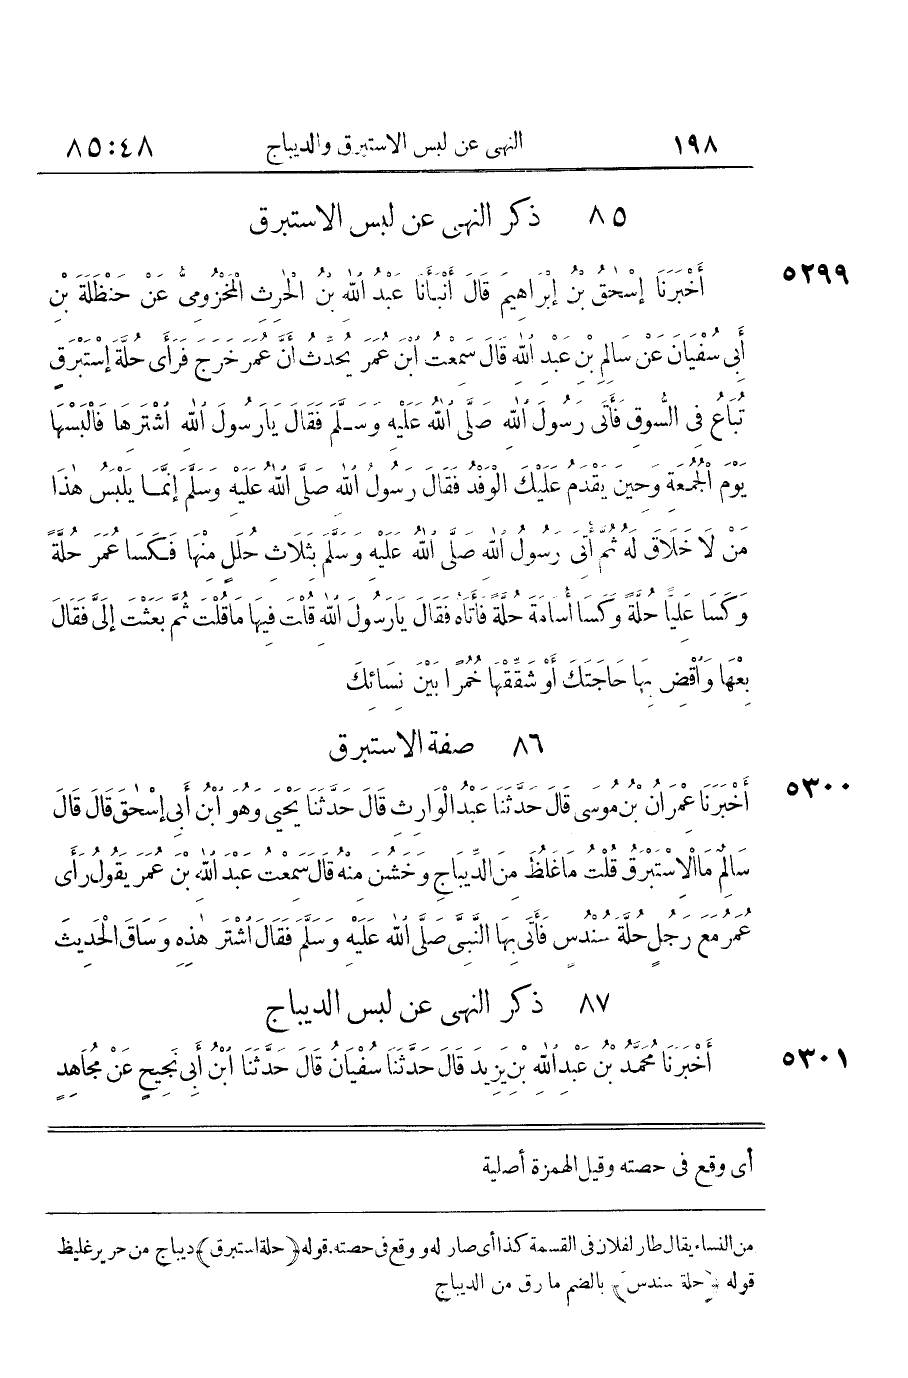 ١٩٨ النهى عن لبس الاستبرق والديباج ٨٥:٤٨
٨٥ ذكر النهى عن لبس الاستبرق
٥٢٩٩ أَخْبَرَنَا إِسْحٰقُ بْنُ إِبْرَاهِيمَ قَالَ أَنْبَأَنَا عَبْدُ اللهِ بْنُ الْحٰرِثِ الْمَخْزُومِىُّ عَنْ حَنْظَلَةَ بْنِ
أَبِى سُفْيَانَ عَنْ سَالِمِ بْنِ عَبْدِ اللهِ قَالَ سَمِعْتُ ابْنَ عُمَرَ يُحَدِّثُ أَنَّ عُمَرَ خَرَجَ فَرَأَى حُلَّةَ إِسْتَبْرَقٍ
تُبَاعُ فِى السُّوقِ فَأَتَى رَسُولَ اللهِ صَلَّى اللهُ عَلَيْهِ وَسَلَّمَ فَقَالَ يَارَسُولَ اللهِ اشْتَرِهَا فَالْبَسْهَا
يَوْمَ الْجُمُعَةِ وَحِينَ يَقْدَمُ عَلَيْكَ الْوَفْدُ فَقَالَ رَسُولُ اللهِ صَلَّى اللهُ عَلَيْهِ وَسَلَّمَ إِنَّمَا يَلْبَسُ هٰذَا
مَنْ لَا خَلَاقَ لَهُ ثُمَّ أُتِىَ رَسُولُ اللهِ صَلَّى اللهُ عَلَيْهِ وَسَلَّمَ بِثَلَاثِ حُلَلٍ مِنْهَا فَكَسَا عُمَرَ حُلَّةً
وَكَسَا عَلِيًّا حُلَّةً وَكَسَا أُسَامَةَ حُلَّةً فَأَتَاهُ فَقَالَ يَارَسُولَ اللهِ قُلْتَ فِيهَا مَاقُلْتَ ثُمَّ بَعَثْتَ إِلَىَّ فَقَالَ
بِعْهَا وَاقْضِ بِهَا حَاجَتَكَ أَوْ شَقِّقْهَا خُمُرًا بَيْنَ نِسَائِكَ
٨٦ صفة الاستبرق
٥٣٠٠ أَخْبَرَنَا عِمْرَانُ بْنُ مُوسَى قَالَ حَدَّثَنَا عَبْدُ الْوَارِثِ قَالَ حَدَّثَنَا يَحْيَى وَهُوَ ابْنُ أَبِى إِسْحٰقَ قَالَ قَالَ
سَالِمٌ مَا الْإِسْتَبْرَقُ قُلْتُ مَا غَلُظَ مِنَ الدِّيبَاجِ وَخَشُنَ مِنْهُ قَالَ سَمِعْتُ عَبْدَ اللهِ بْنَ عُمَرَ يَقُولُ رَأَى
عُمَرُ مَعَ رَجُلٍ حُلَّةَ سُنْدُسٍ فَأَتَى بِهَا النَّبِىَّ صَلَّى اللهُ عَلَيْهِ وَسَلَّمَ فَقَالَ اشْتَرِ هٰذِهِ وَسَاقَ الْحَدِيثَ
٨٧ ذكر النهى عن لبس الديباج
٥٣٠١ أَخْبَرَنَا مُحَمَّدُ بْنُ عَبْدِ اللهِ بْنِ يَزِيدَ قَالَ حَدَّثَنَا سُفْيَانُ قَالَ حَدَّثَنَا ابْنُ أَبِى نَجِيحٍ عَنْ مُجَاهِدٍ
أى وقع فى حصته وقيل الهمزة أصلية
من النساء يقال طار لفلان فى القسمة كذا أى صار له و وقع فى حصته. قوله ﴿حلة استبرق﴾ ديباج من حرير غليظ
قوله ﴿حلة سندس﴾ بالضم ما رق من الديباج